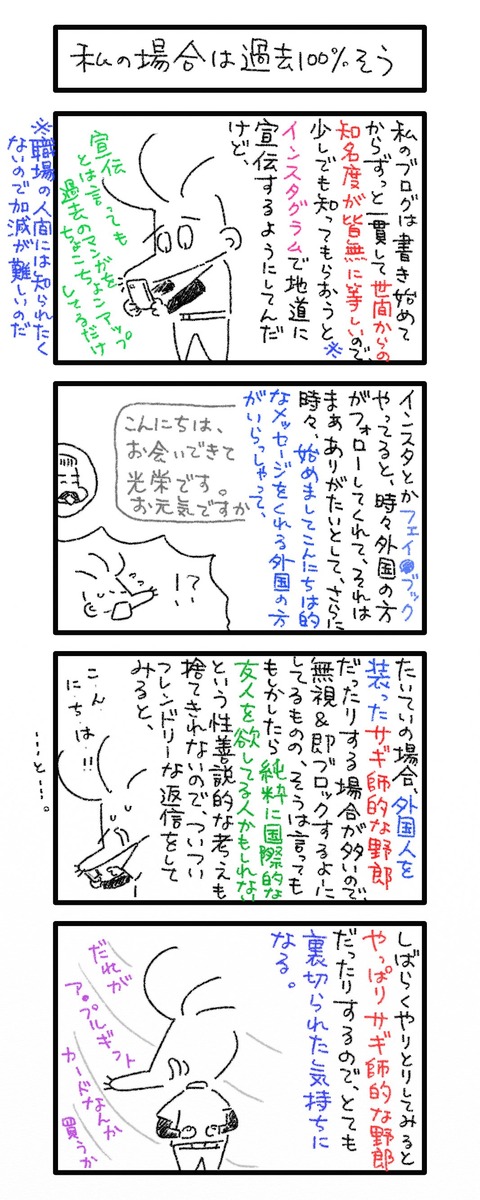 私の場合は過去100%そう
私のブログは書き始めて
からずっと一貫して世間からの
知名度が皆無に等しいので、
少しでも知ってもらおうと※
インスタグラムで地道に
宣伝するようにしてんだ
けど、
宣伝
とは言っても
過去のマンガを
ちょこちょこアップ
してるだけ
※職場の人間には知られたく
ないので加減が難しいのだ
インスタとかフェイ●ブック
やってると、時々外国の方
がフォローしてくれて、それは
まぁありがたいとして、さらに
時々、始めましてこんにちは的
なメッセージをくれる外国の方
がいらっしゃって、
こんにちは、
お会いできて
光栄です。
お元気ですか
!?
たいていの場合、外国人を
装ったサギ師的な野郎
だったりする場合が多いので、
無視&即ブロックするように
してるものの、そうは言っても
もしかしたら純粋に国際的な
友人を欲してる人かもしれない
という性善説的な考えも
捨てきれないので、ついつい
フレンドリーな返信をして
みると、
こん
にちは!!
…と…。
しばらくやりとりしてみると
やっぱりサギ師的な野郎
だったりするので、とても
裏切られた気持ちに
なる。
だれが
ア●プルギフト
カードなんか
買うか